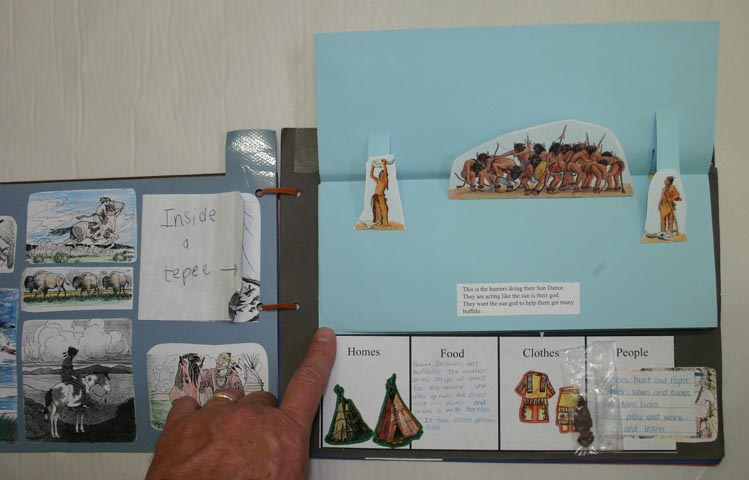 Inside
a
tepee →
This is the hunters doing their Sun Dance.
They are acting like the sun is their god.
They want the sun god to help them get many
buffalo.
Homes
Food
Sioux Indians eat
buffalo. The mother
dries strips of meat
for the winter. She
also grinds the dried
meat into and
mixes it with berries.
It was called
Clothes
People
hunt and fight.
sews and cooks.
hides.
play and work
and learn.